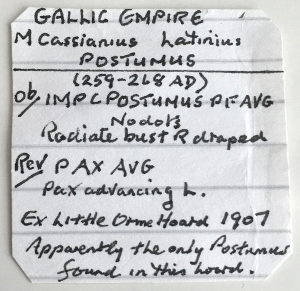 GALLIC EMPIRE
M Cassianius Latinius
POSTUMUS
(259-268 AD)
Ob/ IMP C POSTUMUS PF AVG
No dots
Radiate bust R draped
Rev/ PAX AVG
Pax advancing L.
Ex Little Orme Hoard 1907
Apparently the only Postumus
found in this hoard.